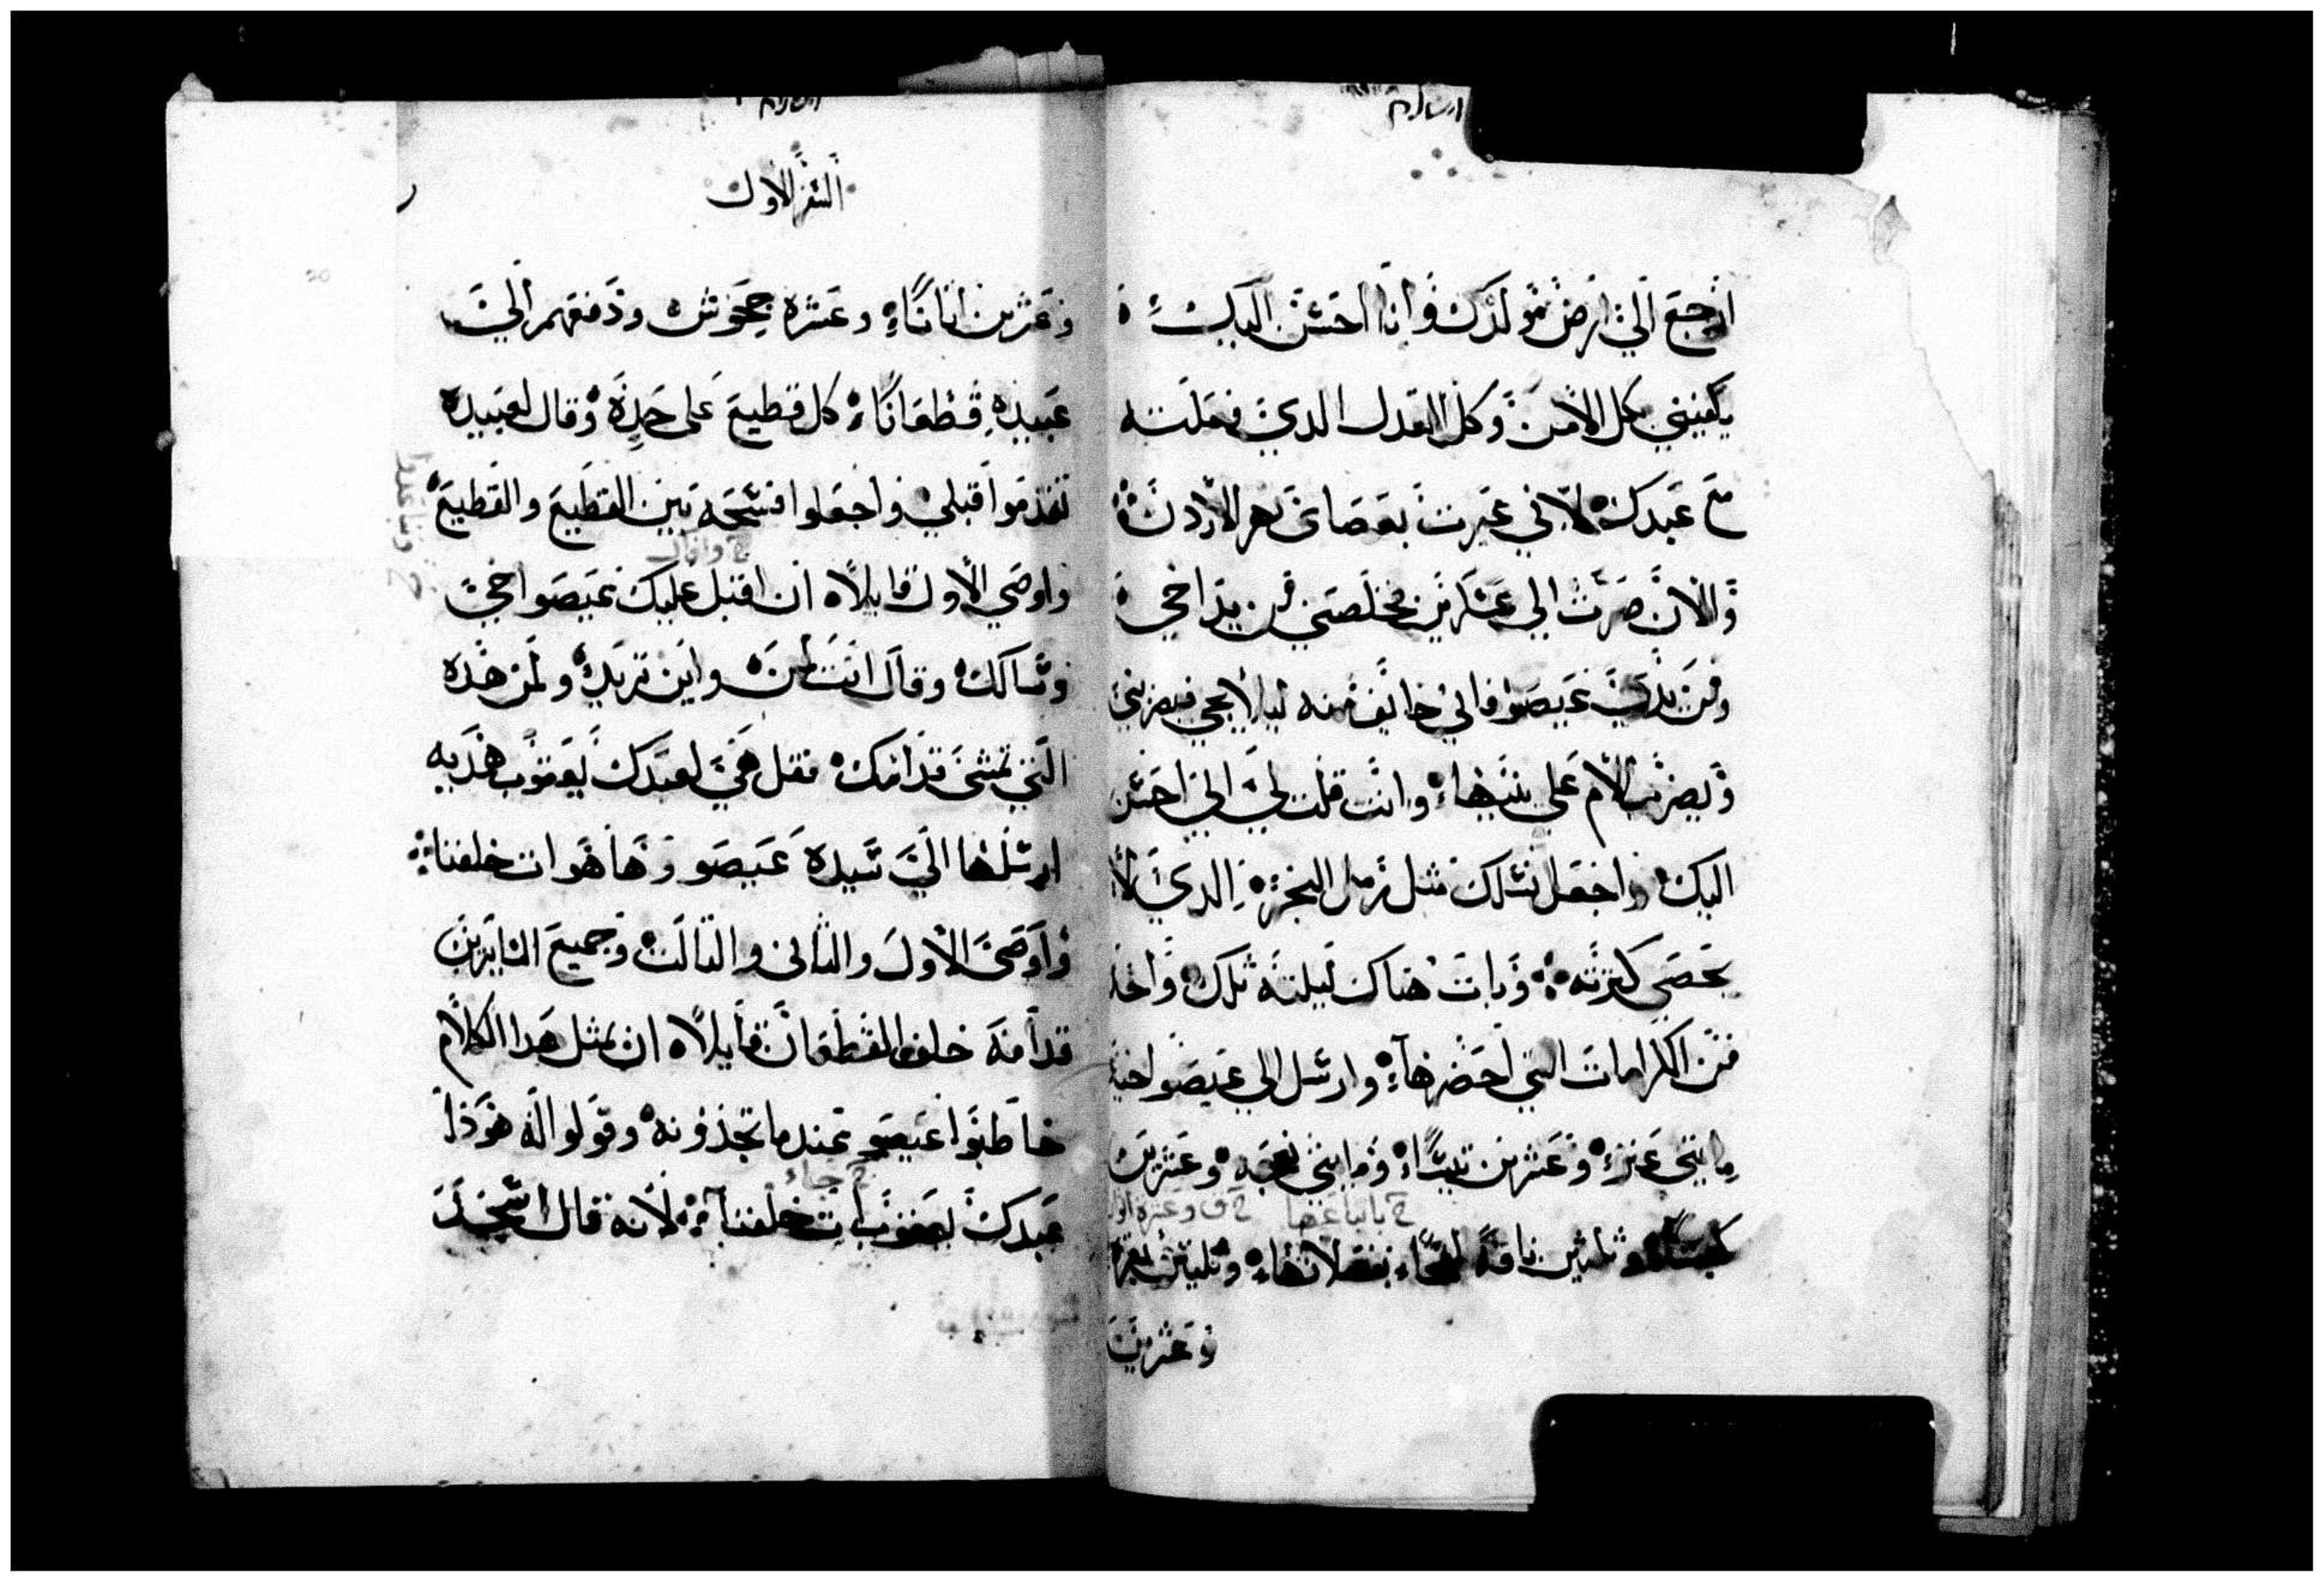 ارجع الي ارض مولدك وانا احسن اليك
يكفيني كل الامن وكل العدل الدي فعلته
مع عبدك لاني عبرت بعصاي نهر الاردن
والان صرت الي عسكرين فخلصني من يد اخي
ومن يدي عيصو فاني خايف منه ليلا يجي فيضربني
ويضرب الام علي بنيها وانت قلت لي اني احسن
اليك واجعل نسلك مثل رمل البحر الدي لا
يحصي كثرته وبات هناك ليلته تلك واخد
من الكرامات التي احضرها وارسل الي عيصو اخيه
مايتي عنزه وعشرين تيسا ومايتي نعجه وعشرين
كبشا وثلاثين ناقة بفصلانها وثلثين بقره
وعشرين
السفر الاول
وعشرين اتانا وعشره جحوش ودفعهم الي
عبيده قطعانا كل قطيع علي حدة وقال لعبيده
تقدموا قبلي واجعلوا فسحه بين القطيع والقطيع
واوصي الاول قايلا ان اقبل عليك عيصو اخي
وسالك وقال انت لمن واين تريد ولمن هده
التي تمشي قدامك فقل هي لعبدك يعقوب هديه
ارسلها الي سيده عيصو وها هو ات خلفنا
واوصي الاول والثاني والتالت وجميع السايرين
قدامه خلف القطعان قايلا ان بمثل هدا الكلام
خاطبوا عيصو عندما تجدونه وقولوا له هودا
عبدك يعقوب ات خلفنا لانه قال استجد